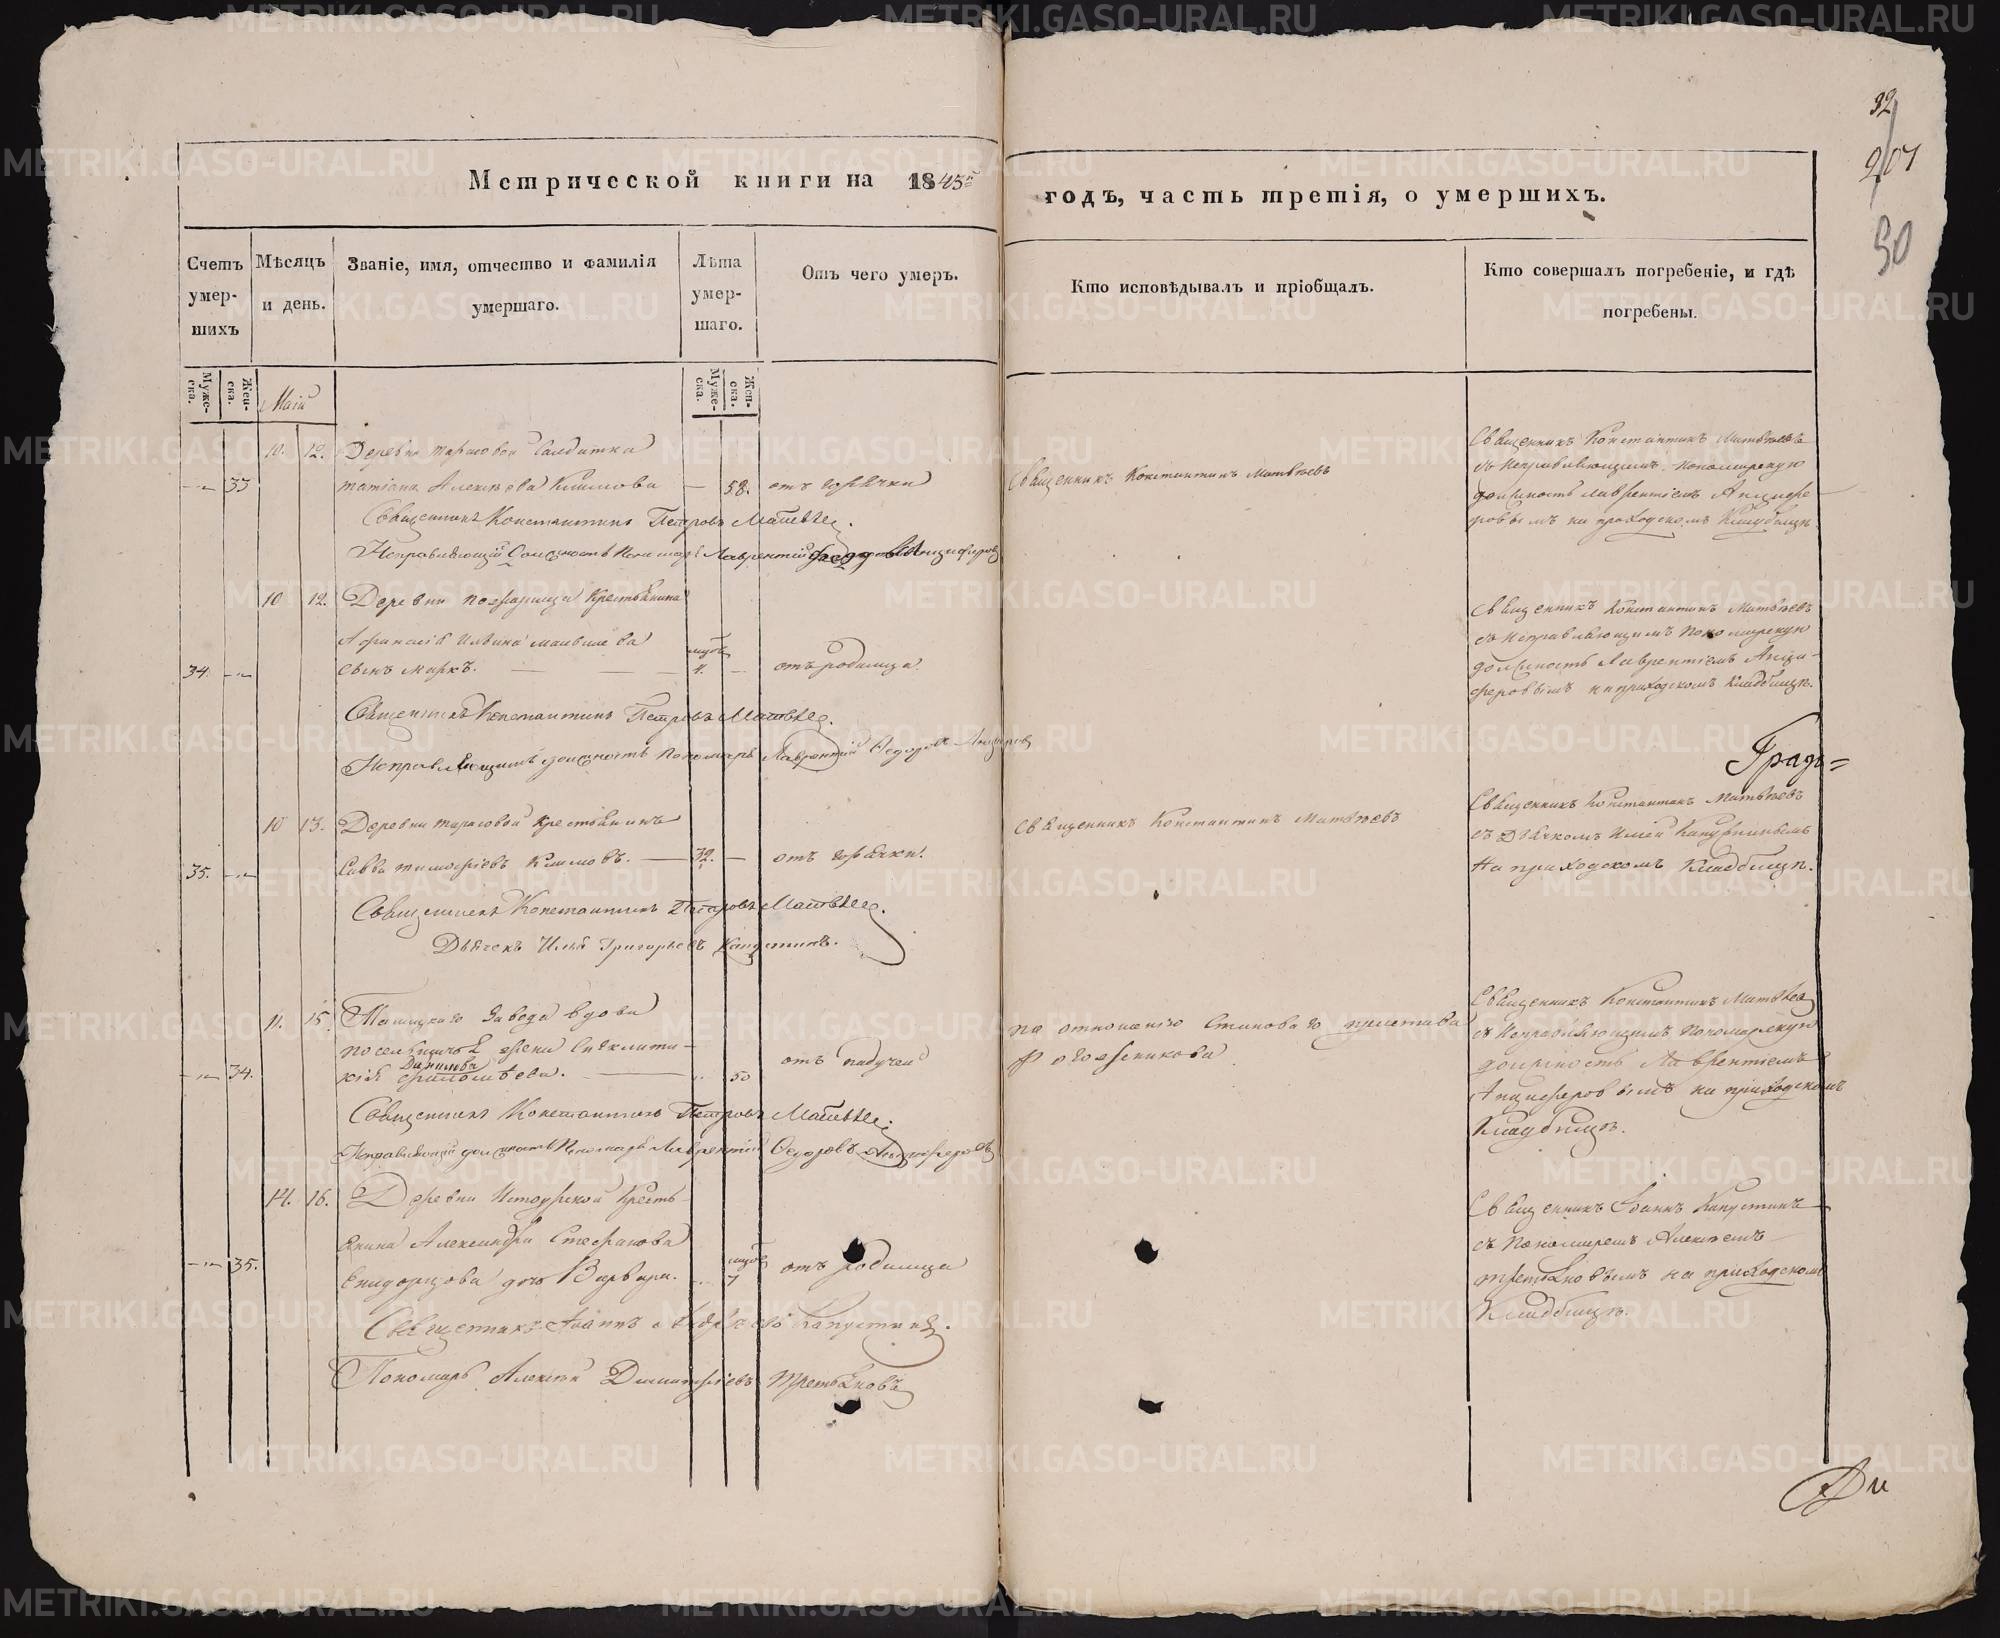 32
207
30
Метрической книги на 1845й
годъ, часть третія, о умершихъ.
Счетъ умер-шихъ
Мѣсяцъ и день.
Званіе, имя, отчество и фамилія умершаго.
Лѣта умер-шаго.
Отъ чего умеръ.
Кто исповѣдывалъ и пріобщалъ.
Кто совершалъ погребеніе, и гдѣ погребены.
Муже-ска.
Жен-ска.
Муже-ска.
Жен-ска.
Маій
10. 12. Деревни Тарасовой Солдатка
33 Татіана Алексѣева Климова — 58. отъ горячки
Священникъ Константинъ Матвѣевъ
Священникъ Константинъ Матвѣевъ
съ Исправляющимъ пономарскую
должность Лаврентіемъ Анцифе
ровымъ на приходскомъ Кладбищѣ
Священникъ Константинъ Петровъ Матвѣев.
Исправляющій Должность Пономаря Лаврентій Анциферов
10 12. Деревни пожарища Крестьянина
Афанасія Ильина
34. сынъ Маркъ. 4. — отъ родимца
Священникъ Константинъ Матвѣевъ
съ Исправляющимъ Пономарскую
должность Лаврентіемъ Анци-
феровымъ на приходскомъ Кладбищѣ.
Священникъ Константинъ Петровъ Матвѣев.
Исправляющий должность пономаря Лаврентій Федоровъ Анциферов
Градъ=
10 13. Деревни тарасовой Крестьянинъ
35. Савва тимофіевъ Климовъ. — 32. — отъ горячки.
Священникъ Константинъ Матвѣевъ
Священникъ Константинъ Матвѣевъ
съ Дьячкомъ Ильей Капустинымъ
На приходскомъ Кладбищѣ.
Священникъ Константинъ Петровъ Матвѣев.
Дьячекъ Илья Григорьевъ Капустинъ.
11. 15. Завода вдова
жена
Данилова
34. 50 отъ падучей
по отношенію Станова го пристава
Священникъ Константинъ Матвѣев
съ Исправляющимъ пономарскую
должность Лаврентіемъ
Анциферовымъ на приходскомъ
Кладбищѣ.
Священникъ Константинъ Петровъ Матвѣев.
Исправляющій должность Пономаря Лаврентій Федоровъ Анциферовъ
14. 16. Деревни Кресть-
янина Александра Стефанова
35. дочь Варвара. 7 отъ родимца
Священникъ Іоаннъ Капустинъ
съ Пономаремъ Алексѣемъ
третьяковымъ на приходскомъ
Кладбищѣ.
Священникъ Іоаннъ Капустинъ.
Пономарь Алексѣй Димитріевъ Третьяковъ
Ди
METRIKI.GASO-URAL.RU